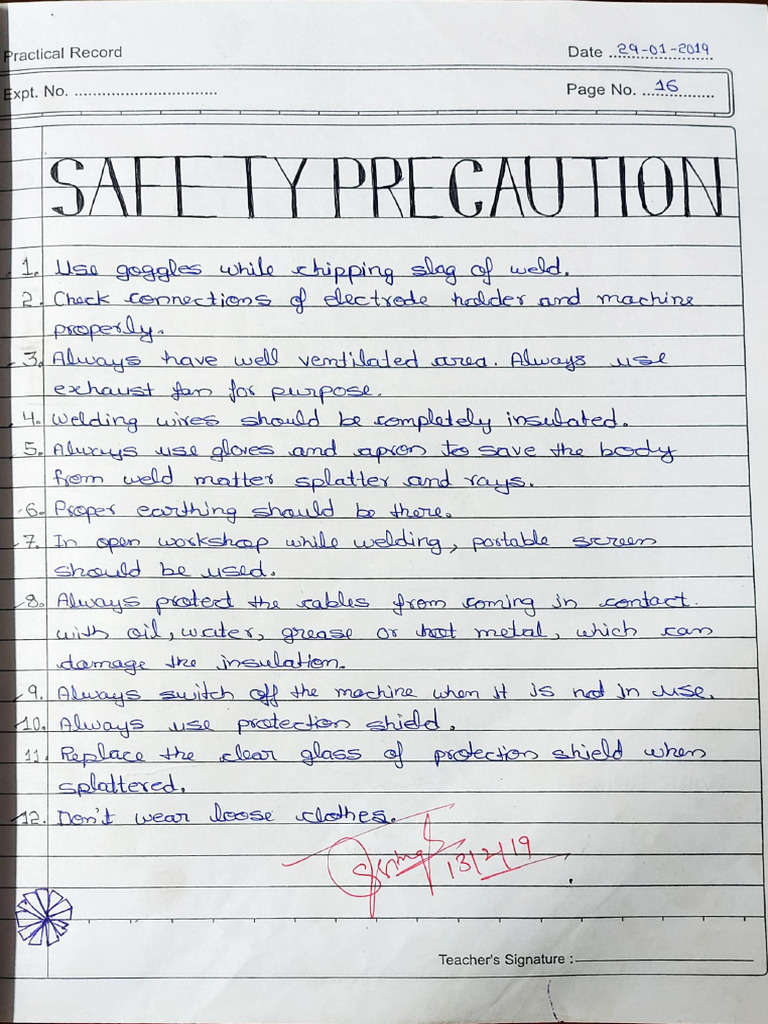 Practical Record
Date 29-01-2019
Expt. No.
Page No. 16
SAFETY PRECAUTION
1. Use goggles while chipping slag of weld.
2. Check connections of electrode holder and machine
properly.
3. Always have well ventilated area. Always use
exhaust fan for purpose.
4. Welding wires should be completely insulated.
5. Always use gloves and apron to save the body
from weld matter splatter and rays.
6. Proper earthing should be there.
7. In open workshop while welding, portable screen
should be used.
8. Always protect the cables from coming in contact
with oil, water, grease or hot metal, which can
damage the insulation.
9. Always switch off the machine when it is not in use.
10. Always use protection shield.
11. Replace the clear glass of protection shield when
splattered.
12. Don't wear loose clothes.
13/2/19
Teacher's Signature :